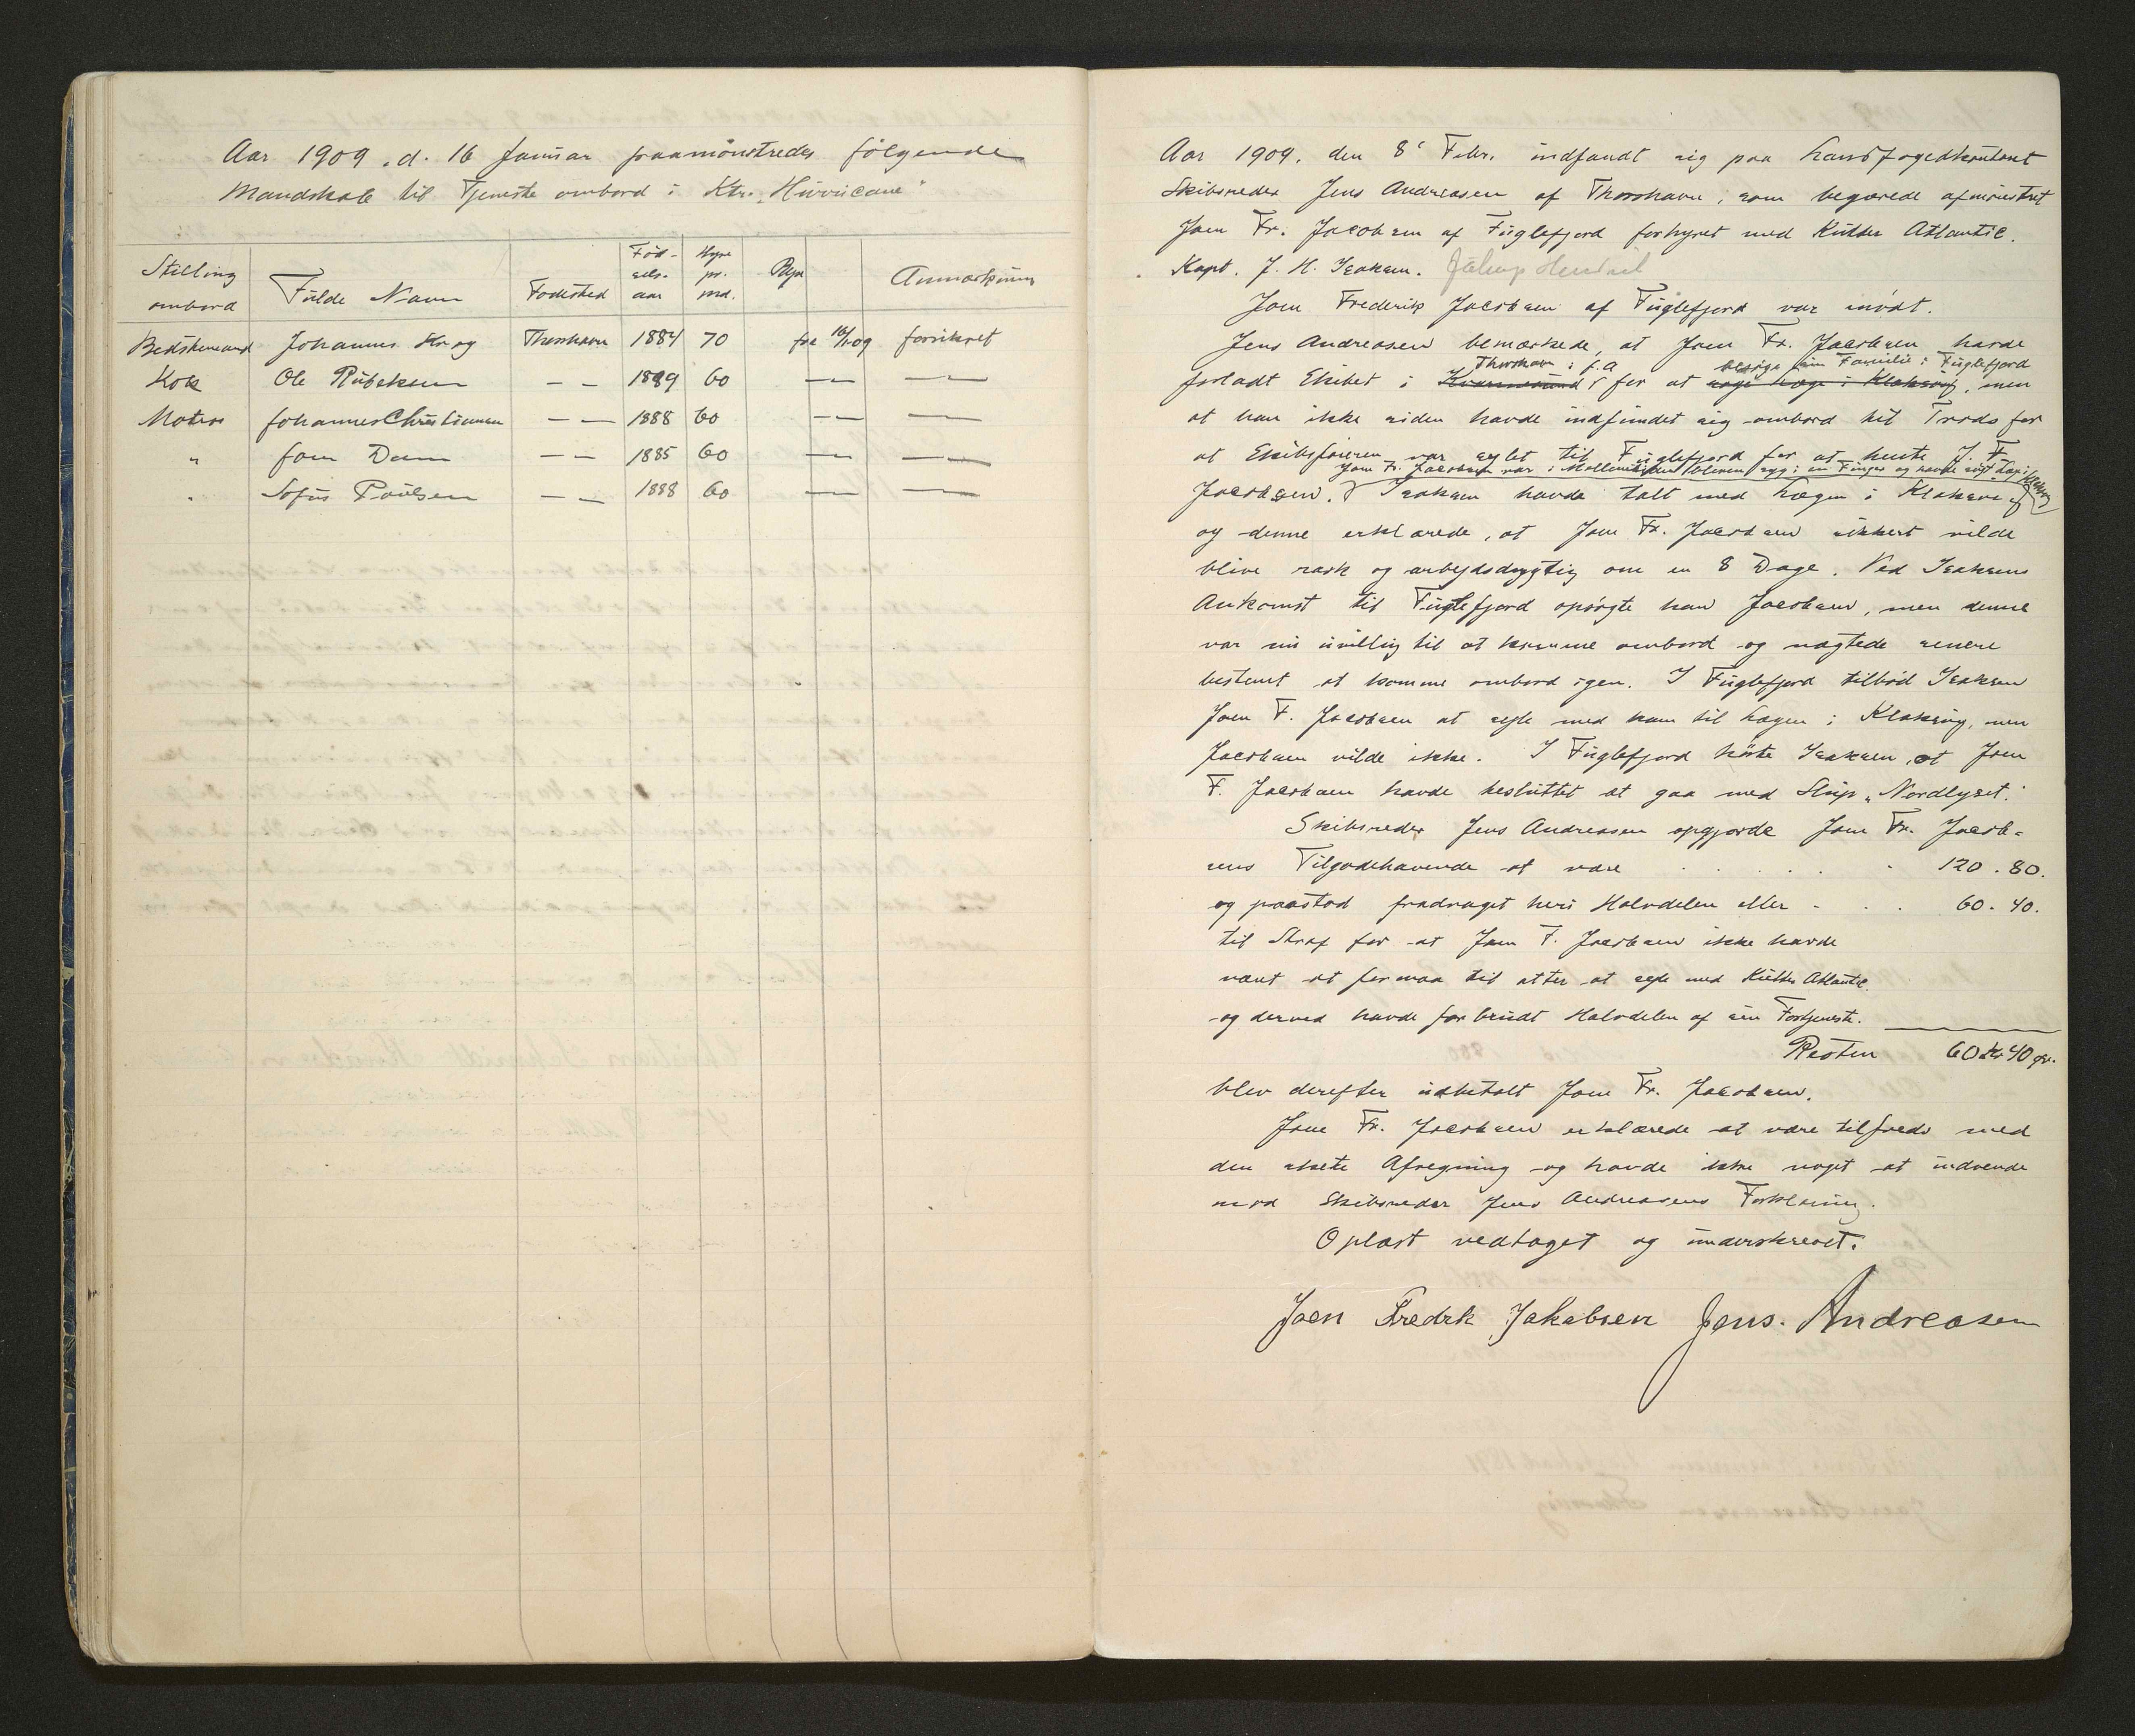 Aar 1909. d. 16 Januar paamönstredes fölgende
Mandskab til Tjeneste ombord i Ktr. „Hurricane"
Stilling ombord Fulde Navn Födested Födselsaar Hyre pr. md. Rejse Anmærkning
Bedstemand Johannes Krog Thorshavn 1884 70 fra 16/1 09 forsikret
Kok Ole Rübeksen — — 1889 60 — —
Matros Johannes Christiansen — — 1888 60 — —
" Joen Dam — — 1885 60 — —
" Sofus Poulsen — — 1888 60 — —
Aar 1909. den 8' Febr. indfandt sig paa Landfogedkontoret
Skibsreder Jens Andreasen af Thorshavn, som begærede afmönstret
Joen Fr. Jacobsen af Fuglefjord forhyret med Kutter Atlantic.
Kapt. J. H. Isaksen.
Joen Frederik Jacobsen af Fuglefjord var mödt.
Jens Andreasen bemærkede, at Joen Fr. Jacobsen havde
Thorshavn i f. A besöge sin Familie i Fuglefjord
forladt Skibet i Kvannesund for at söge Læge i Klaksvig, men
at han ikke siden havde indfundet sig ombord til Trods for
at Skibsföreren var sejlet til Fuglefjord for at hente J. F.
Joen Fr. Jacobsen var i Mellemtiden bleven syg i en Finger og havde sögt Lægen i Klaksvig
Jacobsen. Isaksen havde talt med Lægen i Klaksvig
og denne erklærede, at Joen Fr. Jacobsen sikkert vilde
blive rask og arbejdsdygtig om en 8 Dage. Ved Isaksens
Ankomst til Fuglefjord opsögte han Jacobsen, men denne
var nu uvillig til at komme ombord og nægtede senere
bestemt at komme ombord igen. I Fuglefjord tilböd Isaksen
Joen F. Jacobsen at sejle med ham til Lægen i Klaksvig, men
Jacobsen vilde ikke. I Fuglefjord hörte Isaksen, at Joen
F. Jacobsen havde besluttet at gaa med Slup „Nordlyset".
Skibsreder Jens Andreasen opgjorde Joen Fr. Jacob-
sens Tilgodehavende at være . . . . . 120.80.
og paastod fradraget heri Halvdelen eller . . . 60.40.
til Straf for at Joen F. Jacobsen ikke havde
været at formaa til atter at sejle med Kutter Atlantic
og derved havde forbrudt Halvdelen af sin Fortjeneste.
Resten 60 Kr 40 Öre.
blev derefter udbetalt Joen Fr. Jacobsen.
Joen Fr. Jacobsen erklærede at være tilfreds med
den skete Afregning og havde ikke noget at indvende
mod Skibsreder Jens Andreasens Forklaring.
Oplæst vedtaget og underskrevet.
Joen Fredrk Jakobsen Jens. Andreasen